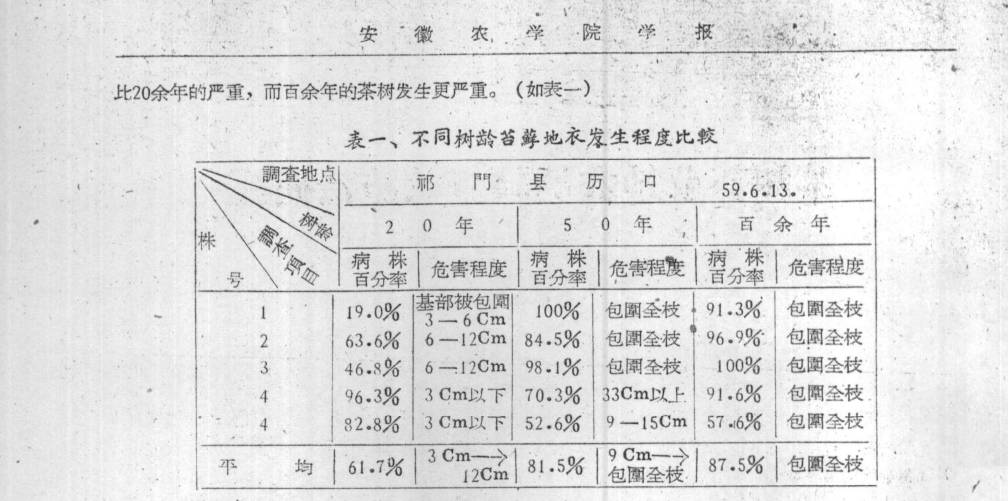 安徽农学院学报
比20余年的严重，而百余年的茶树发生更严重。(如表一)
表一、不同树龄苔蘚地衣发生程度比較
調查地点 祁門县历口 59.6.13.
树龄 20年 50年 百余年
株号 調查項目 病株百分率 危害程度 病株百分率 危害程度 病株百分率 危害程度
1 19.0% 基部被包圍3—6Cm 100% 包圍全枝 91.3% 包圍全枝
2 63.6% 6—12Cm 84.5% 包圍全枝 96.9% 包圍全枝
3 46.8% 6—12Cm 98.1% 包圍全枝 100% 包圍全枝
4 96.3% 3Cm以下 70.3% 33Cm以上 91.6% 包圍全枝
4 82.8% 3Cm以下 52.6% 9—15Cm 57.6% 包圍全枝
平均 61.7% 3Cm—→12Cm 81.5% 9Cm—→包圍全枝 87.5% 包圍全枝